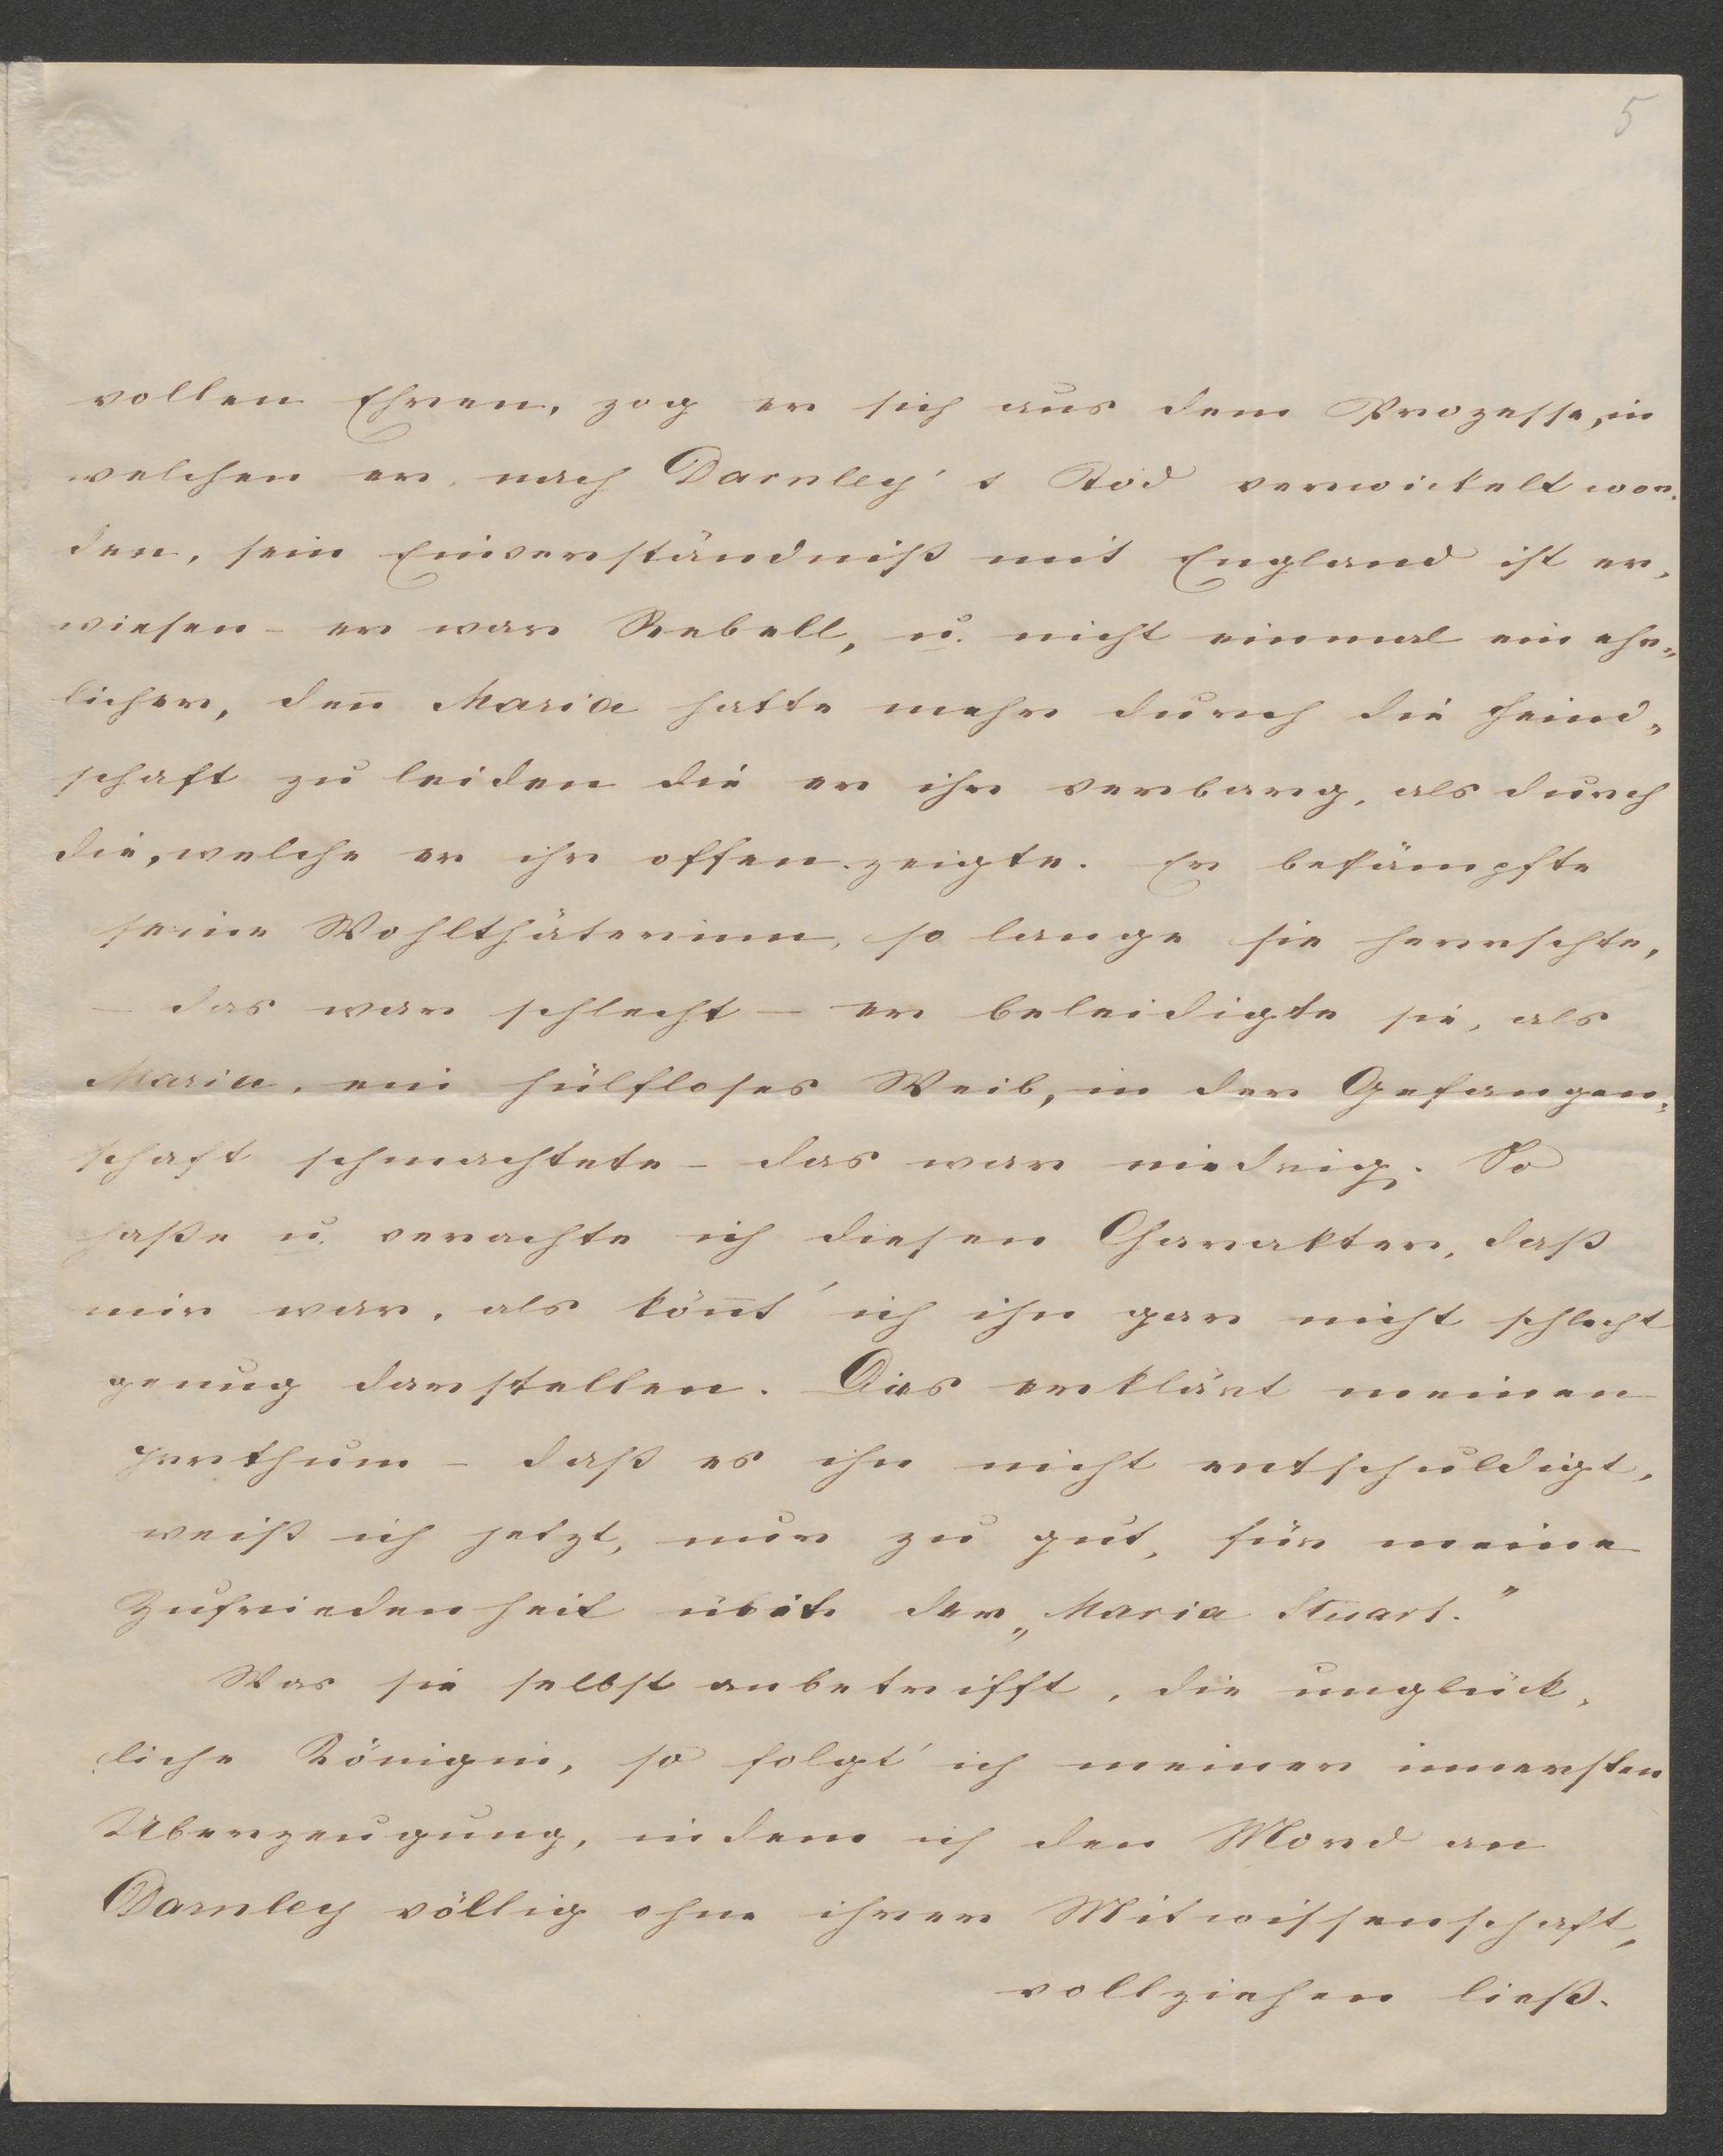 5
vollen Ehren, zog er sich aus dem Prozesse, in
welchen er, nach Darnley's Tod verwickelt wor-
den, sein Einverständniß mit England ist er-
wiesen – er war Rebell, u. nicht einmal ein ehr-
licher, den̄ Maria hatte mehr durch die Feind-
schaft zu leiden die er ihr verbarg, als durch
die, welche er ihr offen zeigte. Er bekämpfte
seine Wohlthäterinn, so lange sie herrschte,
– das war schlecht – er beleidigte sie, als
Maria, ein hülfloses Weib, in der Gefangen-
schaft schmachtete – das war niedrig. So
haße u. verachte ich diesen Charakter, daß
mir war, als kön̄t' ich ihn gar nicht schlecht
genug darstellen. Dies erklärt meinen
Irrthum – daß es ihn nicht entschuldigt,
weiß ich jetzt, nur zu gut, für meine
Zufriedenheit mit der „Maria Stuart."
Was sie selbst anbetrifft, die unglück-
liche Königin, so folgt' ich meiner innersten
Uberzeugung, indem ich den Mord an
Darnley völlig ohne ihrer Mitwissenschaft,
vollziehen ließ.